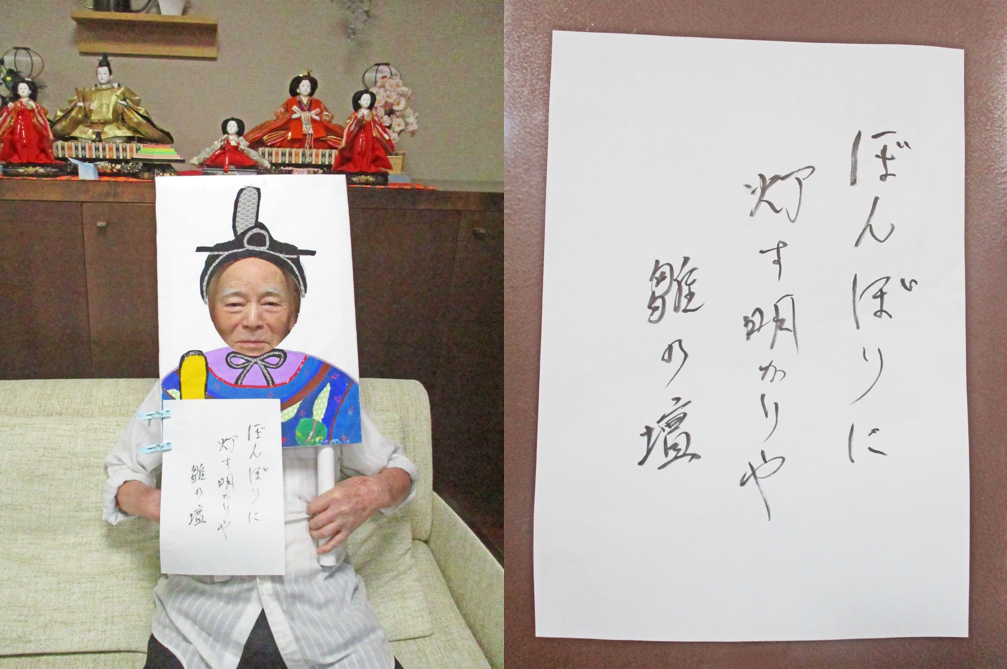 ぼんぼりに
灯す明かりや
雛の壇
ぼんぼりに
灯す明かりや
雛の壇